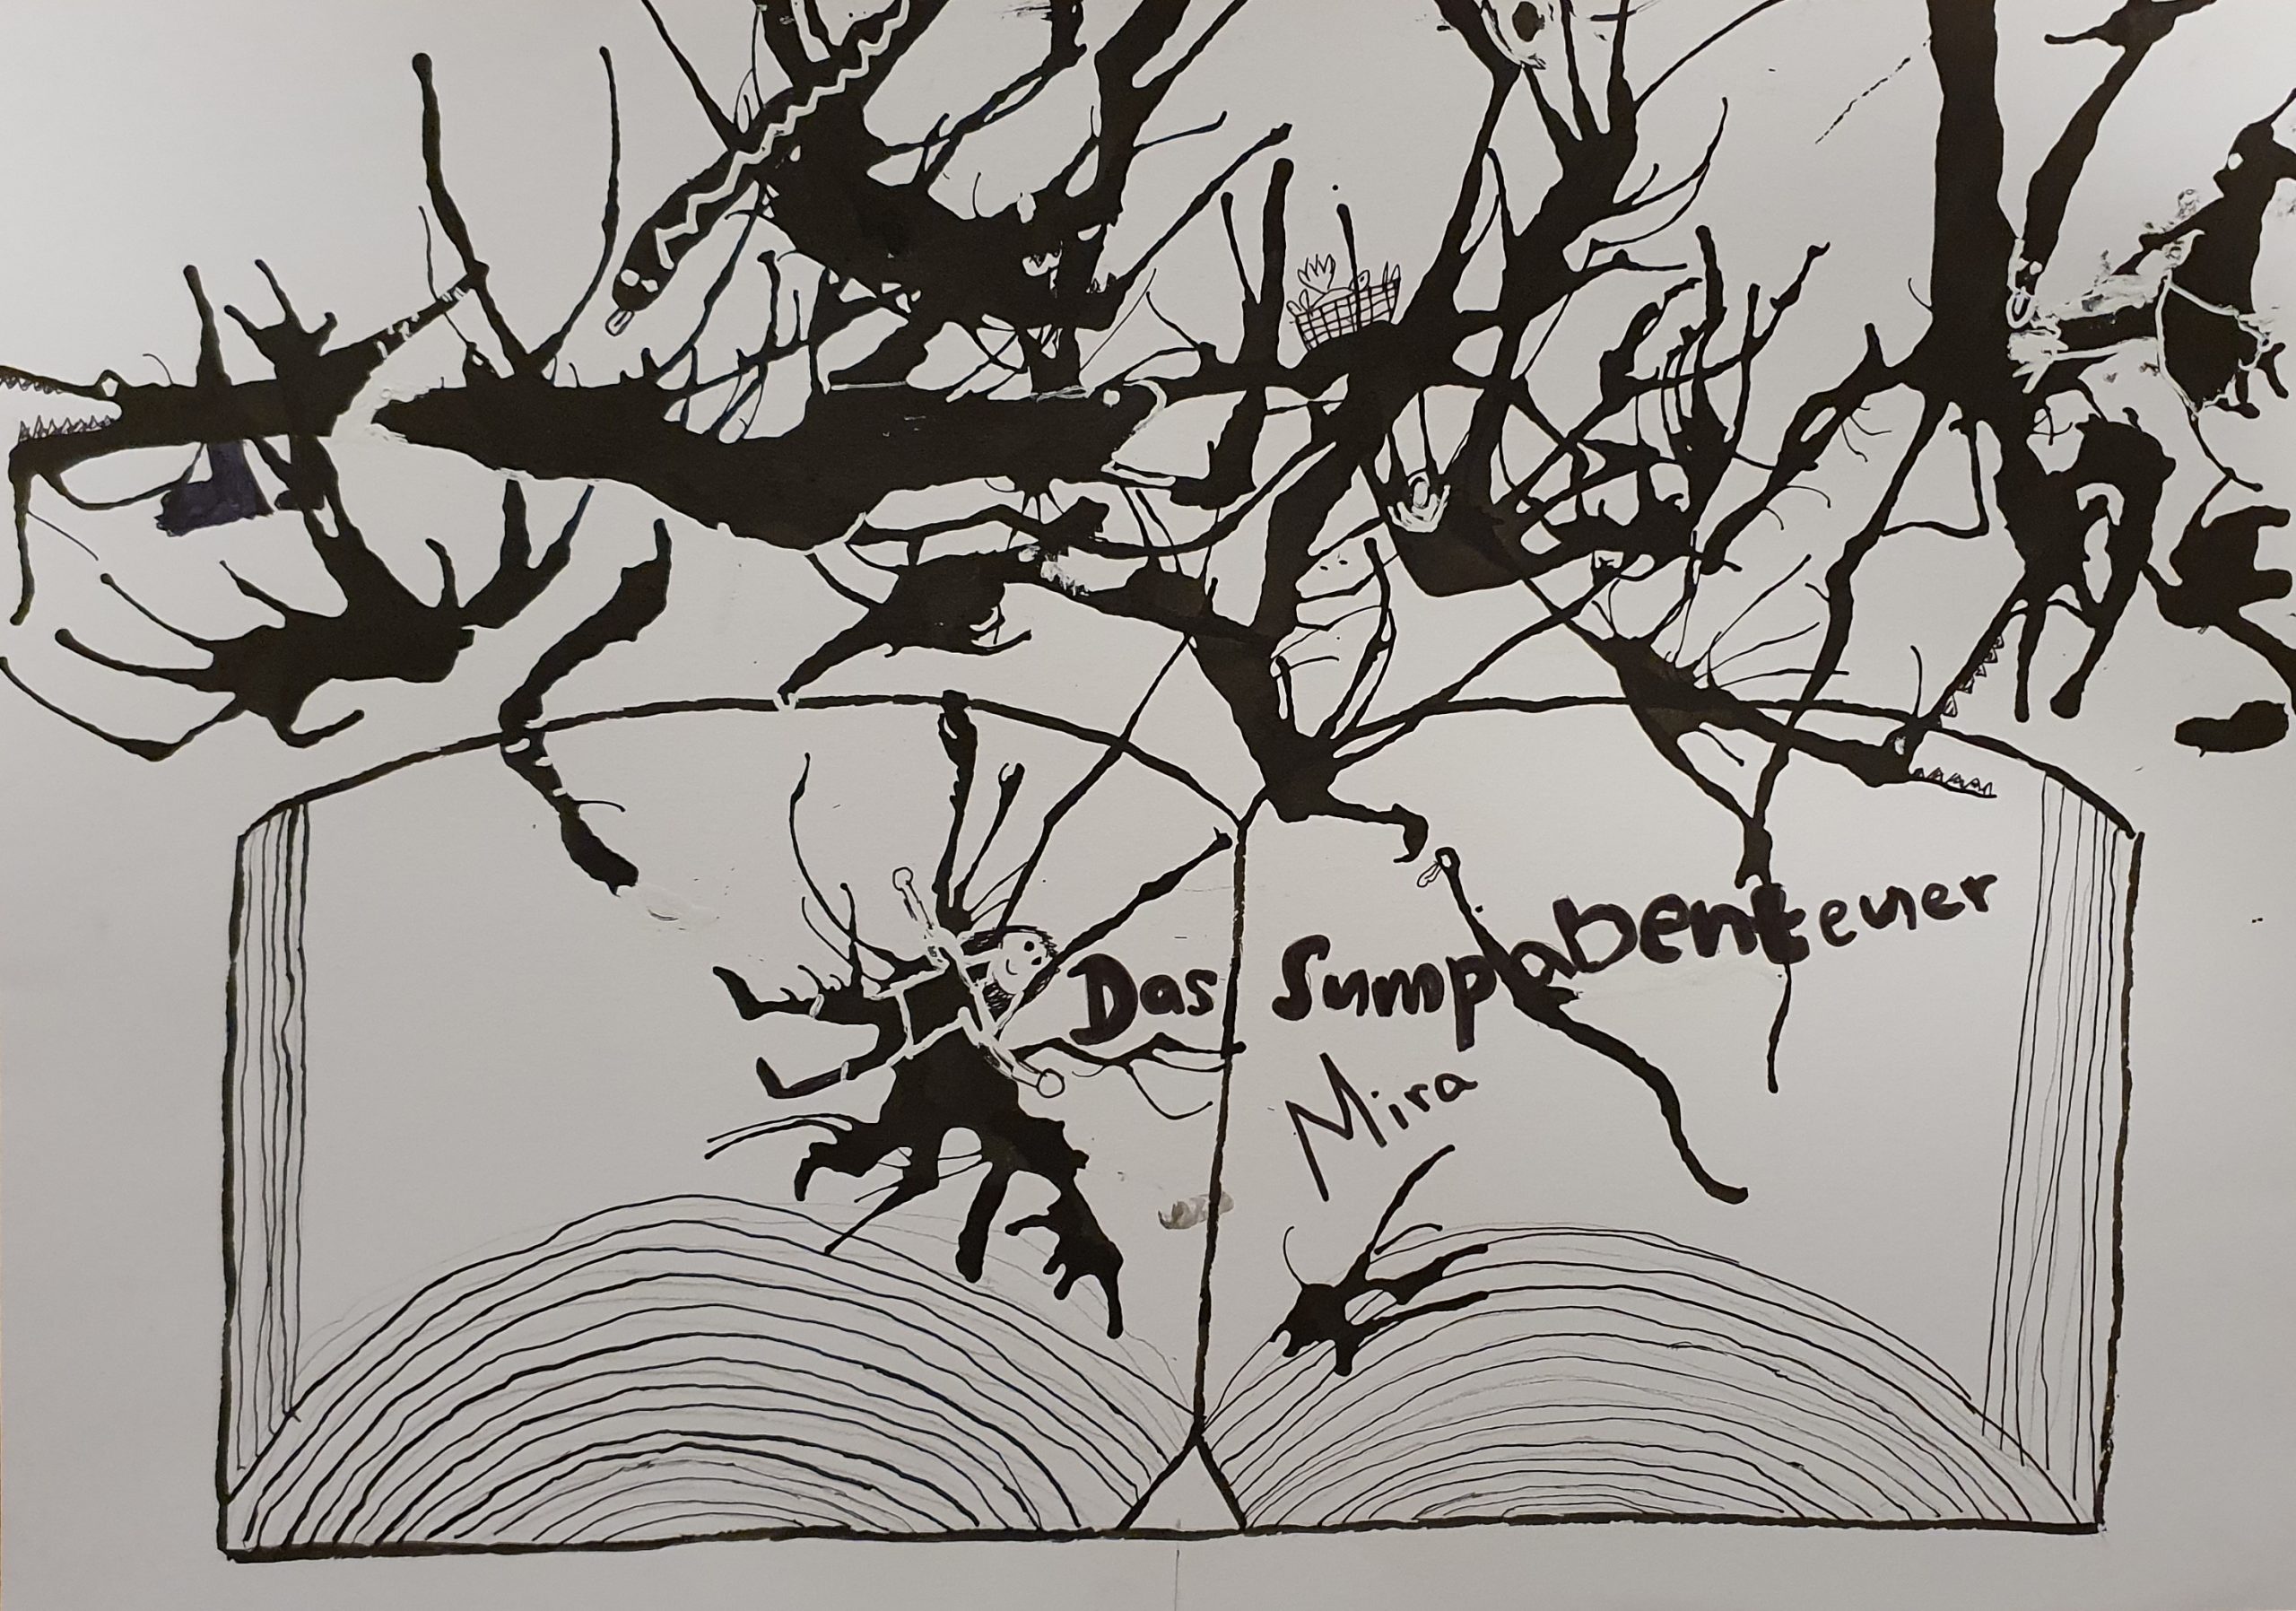 Das Sumpfabenteuer
Mira